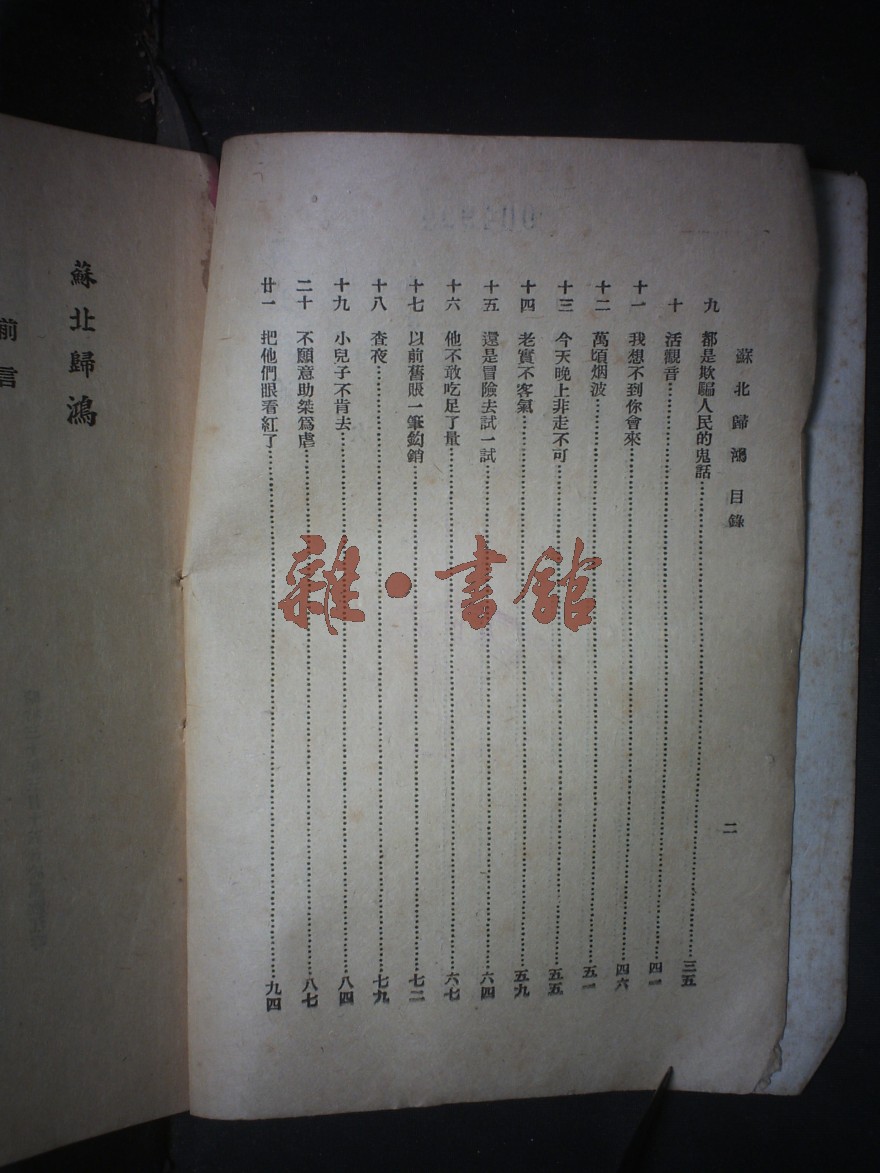 蘇北歸鴻 目錄
二
九 都是欺騙人民的鬼話……三五
十 活觀音……四一
十一 我想不到你會來……四六
十二 萬頃烟波……五一
十三 今天晚上非走不可……五五
十四 老實不客氣……五九
十五 還是冒險去試一試……六四
十六 他不敢吃足了量……六七
十七 以前舊賬一筆鈎銷……七二
十八 查夜……七九
十九 小兒子不肯去……八四
二十 不願意助桀爲虐……八七
廿一 把他們眼看紅了……九四
雜·書館
蘇北歸鴻
前言